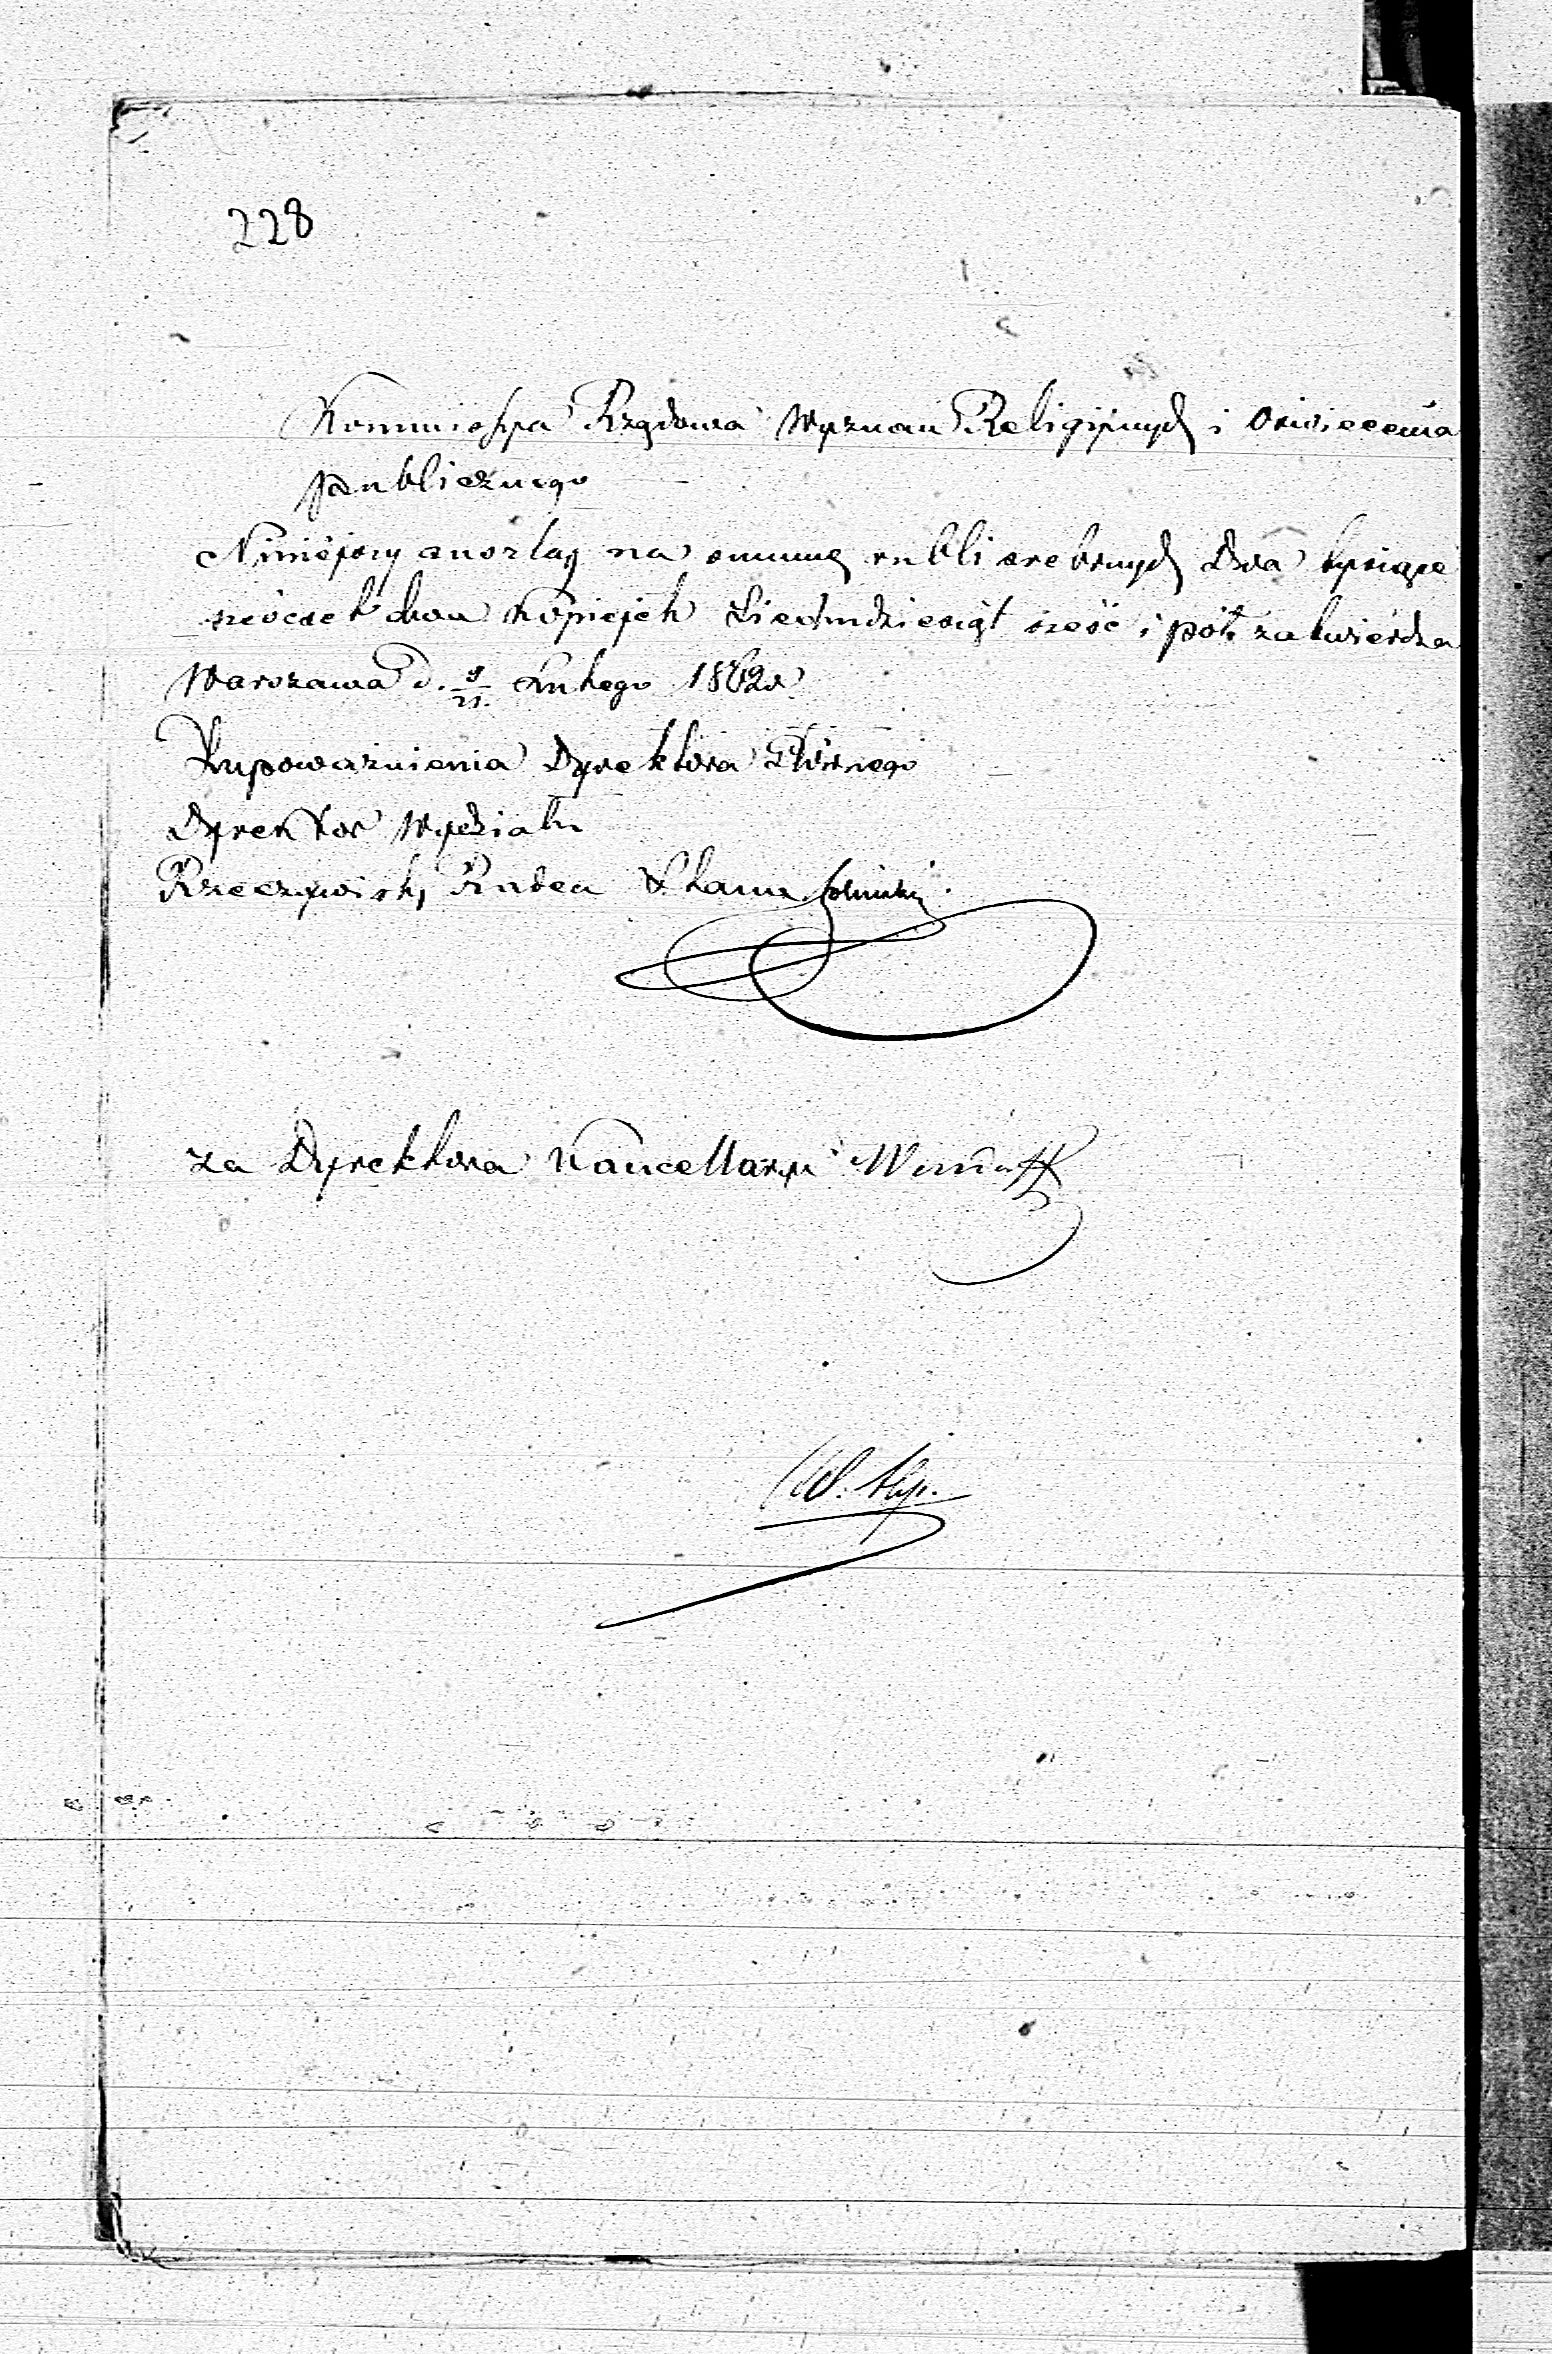 228
Kommissya Rządowa Wyznań Religijnych i Oświecenia
publicznego
Niniejszy anszlag na summę rubli srebrnych Dwa tysiące
sześćset dwa kopiejek siedmdziesiąt sześć i pół zatwierdza
Warszawa d. 9/21 Lutego 1862 r.
Z upoważnienia Dyrektora Głównego
Dyrektor Wydziału
Rzeczywisty Radca Stanu
za Dyrektora Kancellaryi